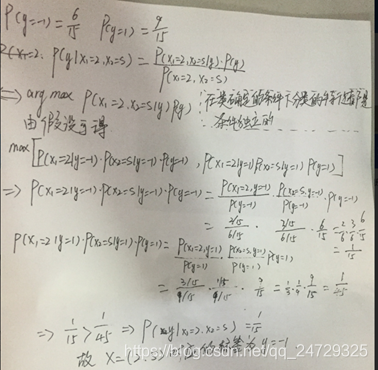 P(y=-1)=6/15 P(y=1)=9/15
P(x₁=2. P(y|x₁=2, x₂=S) = P(x₁=2, x₂=S|y)·P(y) / P(x₁=2, x₂=S)
⇔ arg max P(x₁=2, x₂=S|y)P(y) 在类确定的条件下分类的特征
条件独立的
由假设可得
max[P(x₁=2|y=-1)·P(x₂=S|y=-1)P(y=-1), P(x₁=2|y=1)P(x₂=S|y=1)P(y=1)]
⇒ P(x₁=2|y=-1)·P(x₂=S|y=-1)·P(y=-1) = P(x₁=2,y=-1)/P(y=-1) · P(x₂=S,y=-1)/P(y=-1) · P(y=-1)
= 2/15 / 6/15 · 3/15 / 6/15 · 6/15 = 2/6·3/6·6/15 = 1/15
P(x₁=2|y=1)·P(x₂=S|y=1)P(y=1) = P(x₁=2,y=1)/P(y=1) · P(x₂=S,y=1)/P(y=1) · P(y=1)
= 3/15 / 9/15 · 1/15 / 9/15 · 9/15 = 1/3·1/9·9/15 = 1/45
⇒ 1/15 > 1/45 ⇒ P(y|x₁=2, x₂=S) = 1/15
故 X=(2,S) y=-1
https://blog.csdn.net/qq_24729325